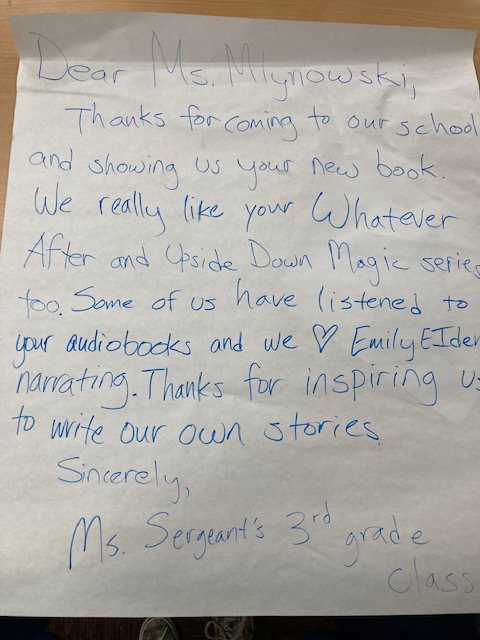 Dear Ms. Mlynowski,
Thanks for coming to our school
and showing us your new book.
We really like your Whatever
After and Upside Down Magic series
too. Some of us have listened to
your audiobooks and we ♡ Emily EIden
narrating. Thanks for inspiring us
to write our own stories
Sincerely,
Ms. Sergeant's 3rd grade
class